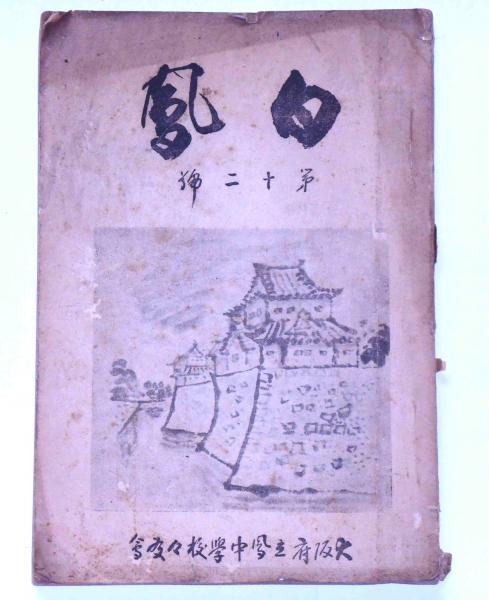 白鳳
第十二號
大阪府立鳳中學校々友會